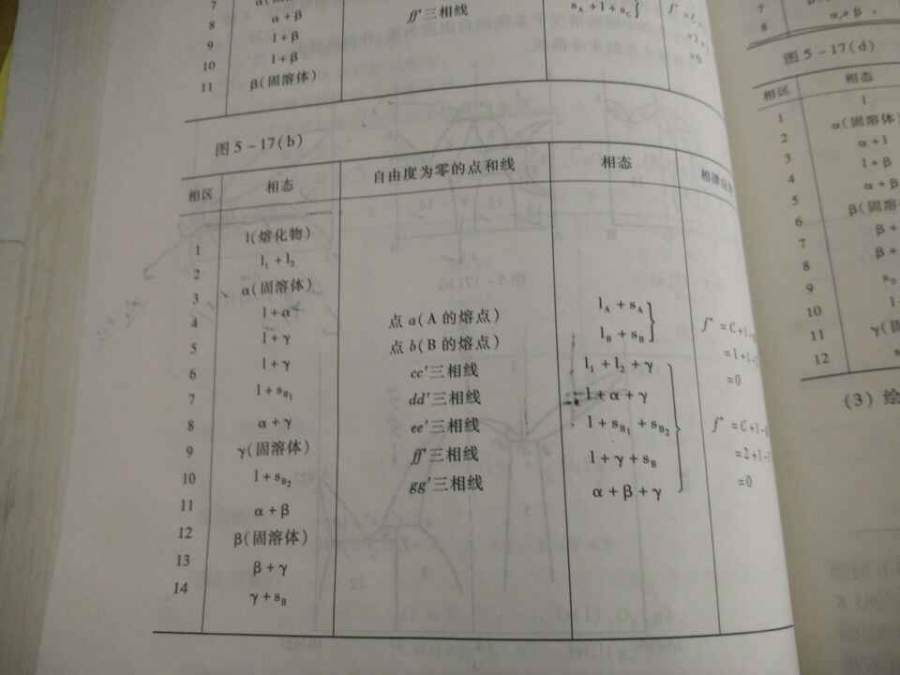 7
8 α+β ff′三相线 s_A+l+s_C}
9 l+β
10 l+β
11 β(固溶体)
图 5-17(b)
相区 相态 自由度为零的点和线 相态
1 l(熔化物)
2 l₁+l₂
3 α(固溶体)
4 l+α 点 a(A 的熔点) l_A+s_A
5 l+γ 点 b(B 的熔点) l_B+s_B
6 l+γ cc′三相线 l₁+l₂+γ
7 l+s_B₁ dd′三相线 l+α+γ
8 α+γ ee′三相线 l+s_B₁+s_B₂
9 γ(固溶体) ff′三相线 l+γ+s_B
10 l+s_B₂ gg′三相线 α+β+γ
11 α+β
12 β(固溶体)
13 β+γ
14 γ+s_B
f* =C+1-
=1+1-
=0
f* =C+1-
=2+1-
=0
7
8 α+β
图 5-17(d)
相区 相态
1 l
2 α(固溶体
3 α+l
4 l+β
5 α+β
6 β(固溶
7 β+
8 β+
9
10
11 γ(固
12
(3) 绘